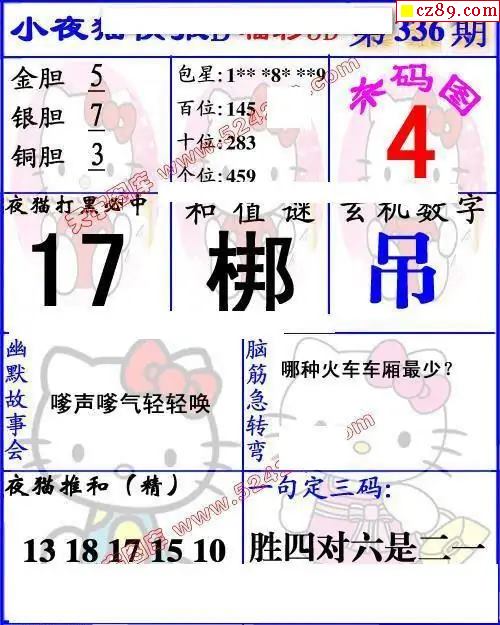 cz89.com
小夜猫
第336期
金胆 5
银胆 7
铜胆 3
包星:1** *8* **9
百位:145
十位:283
个位:459
杀码图
4
夜猫打黑必中
17
和值谜
梆
玄机数字
吊
幽默故事会
嗲声嗲气轻轻唤
脑筋急转弯
哪种火车车厢最少?
夜猫推和(精)
13 18 17 15 10
一句定三码:
胜四对六是二一